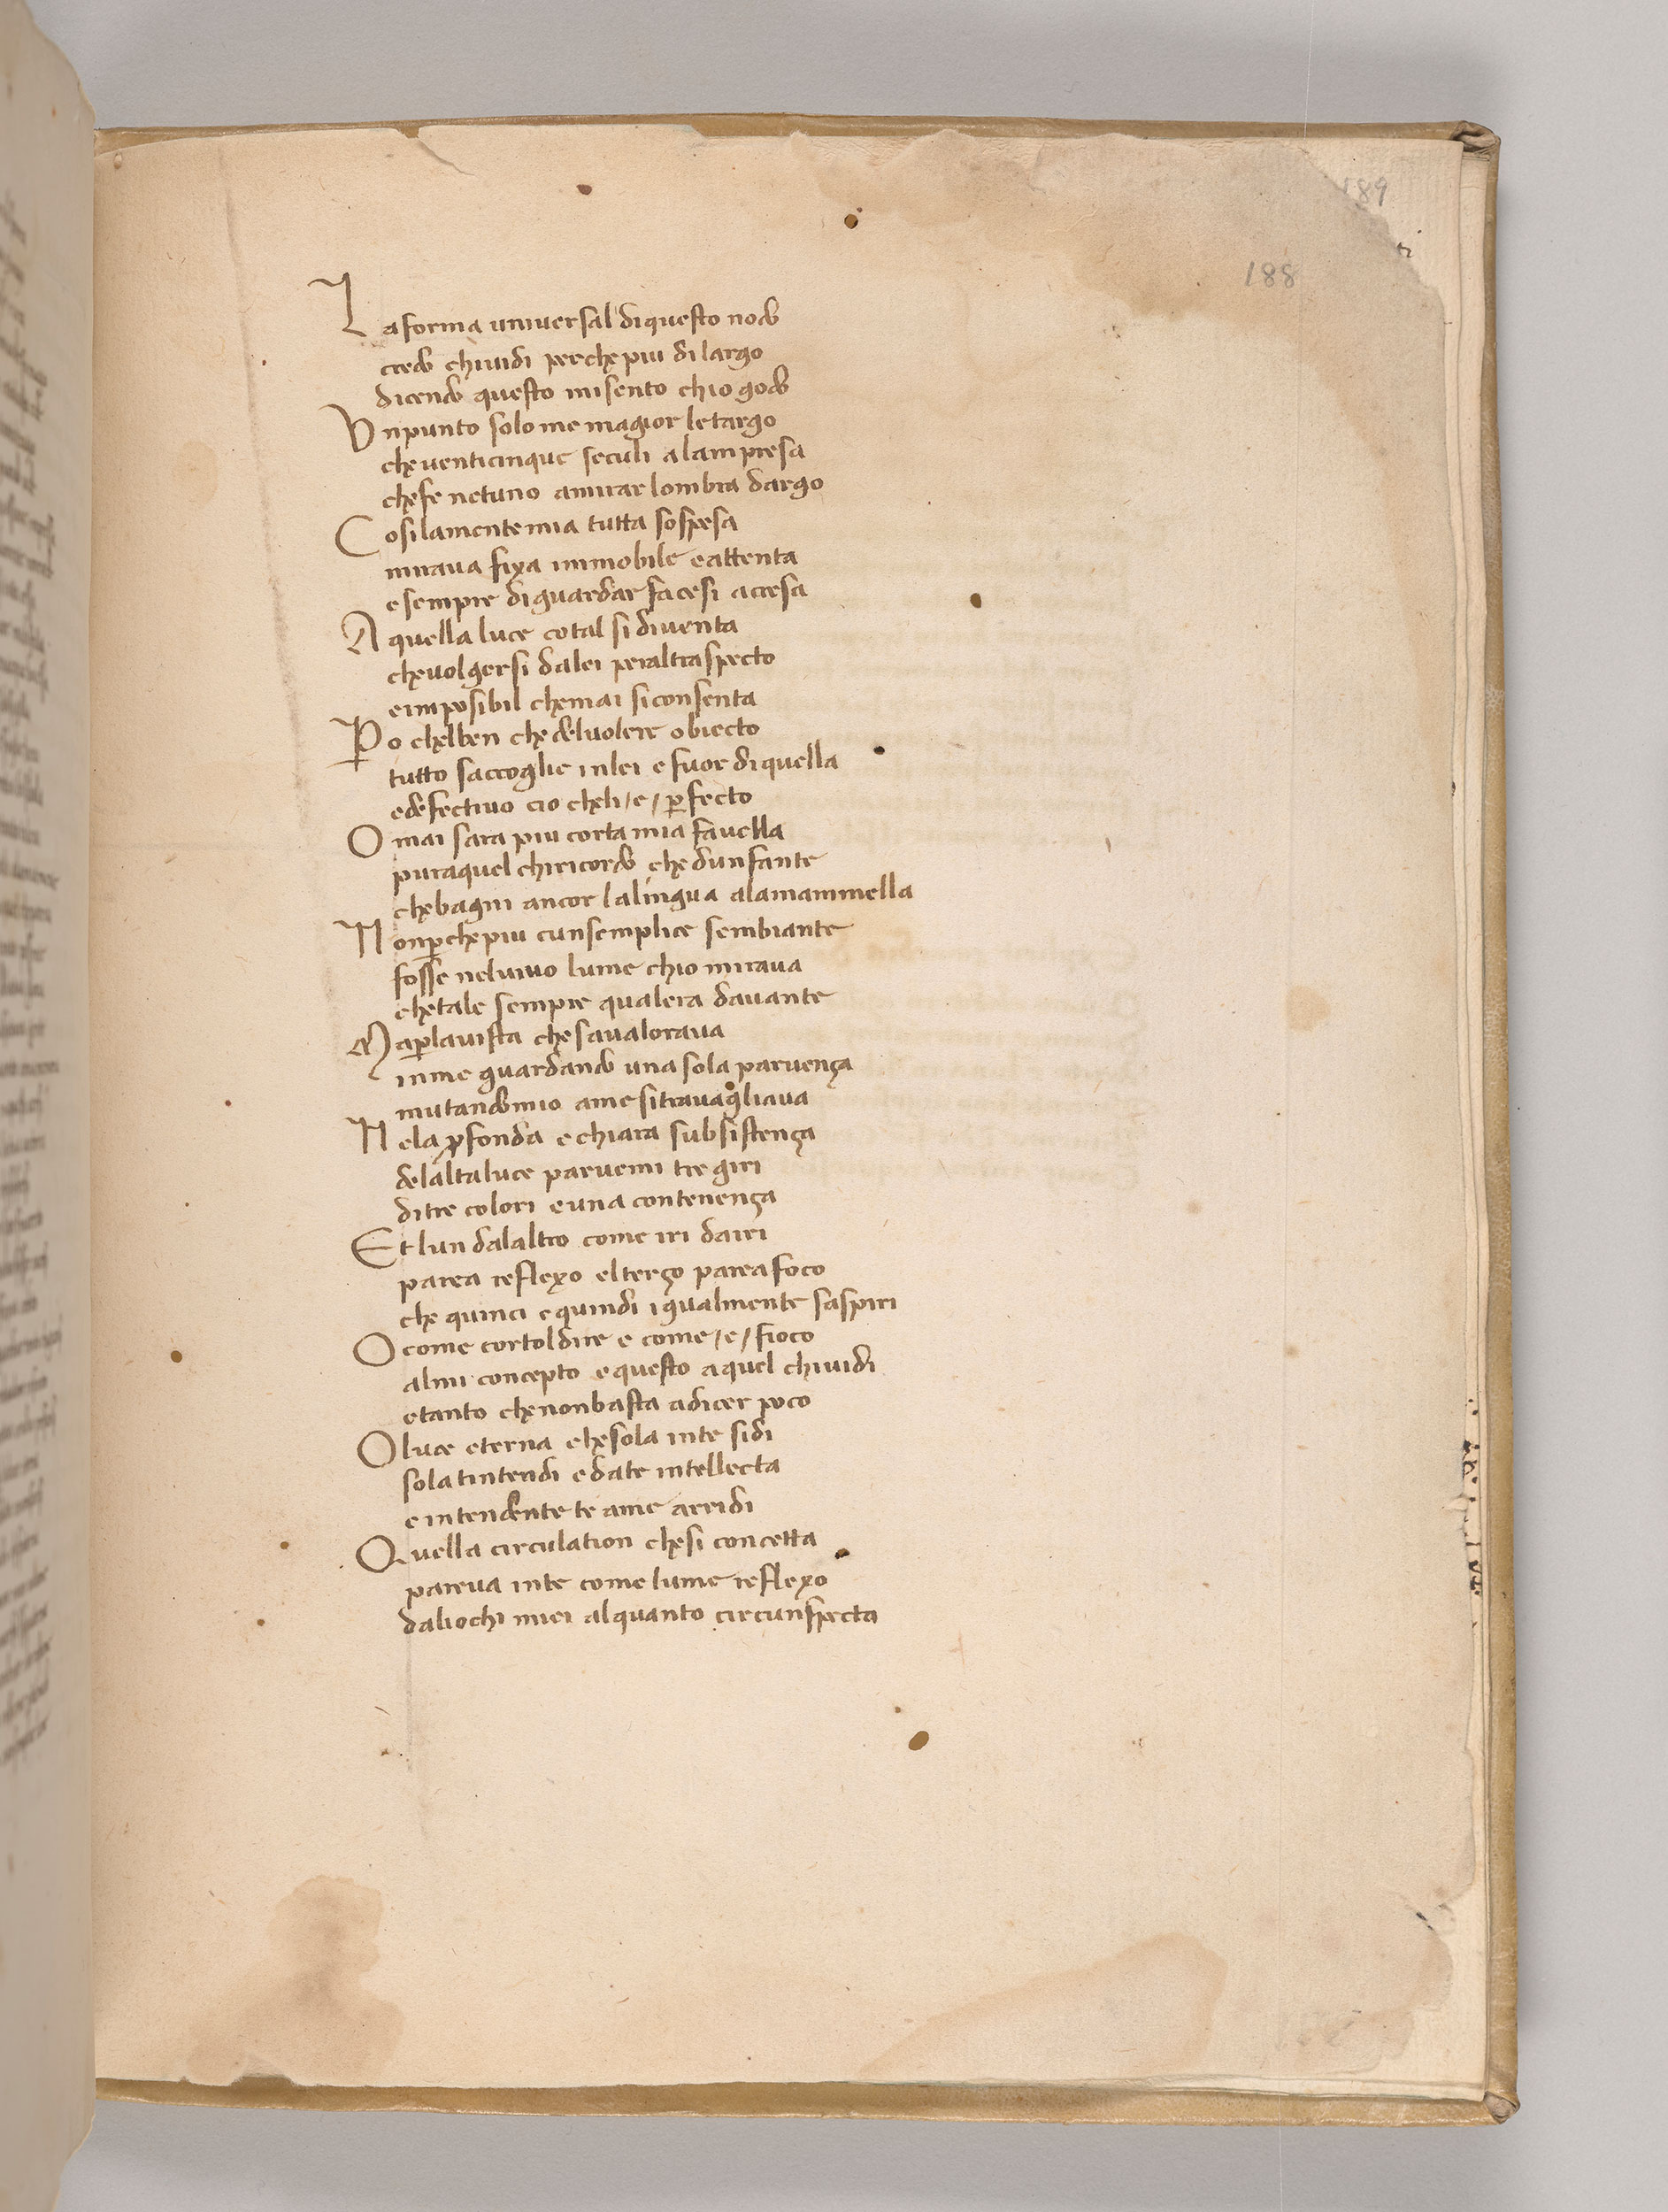 189
188
La forma universal diquesto nodo
credo chiuidi perche piu dilargo
dicendo questo misento chio godo
Un punto solo me magior letargo
che uenticinque seculi alampresa
chefe netuno amirar lombra dargo
Cosi lamente mia tutta sospesa
miraua fixa immobile e attenta
e sempre diguardar facesi accesa
A quella luce cotal si diuenta
che uolgersi dalei peraltraspecto
eimposibil chemai siconsenta
Po chelben che deluolere obiecto
tutto saccoglie inlei e fuor diquella
edefectiuo cio cheli /e/ pfecto
O mai sara piu corta mia fauella
puraquel chiricordo che dunfante
chebagni ancor lalingua alamammella
Non pche piu cunsemplice sembiante
fosse neluiuo lume chio miraua
chetale sempre qualera dauante
Ma plauista chesaualoraua
inme guardando una sola paruença
mutandomio ame sitrauagliaua
Nela pfonda e chiara subsistença
delaltaluce paruemi tre giri
ditre colori e una contenença
Et lun dalaltro come iri dairi
parea reflexo elterço parea foco
che quinci e quindi igualmente saspiri
O come cortoldire e come /e/ fioco
almi concepto e questo a quel chiuidi
etanto chenonbasta adicer poco
O luce eterna chesola inte sidi
sola tintendi e date intellecta
e intendente te ame arridi
Quella circulation chesi concetta
pareua inte come lume reflexo
daliochi miei alquanto circunspecta